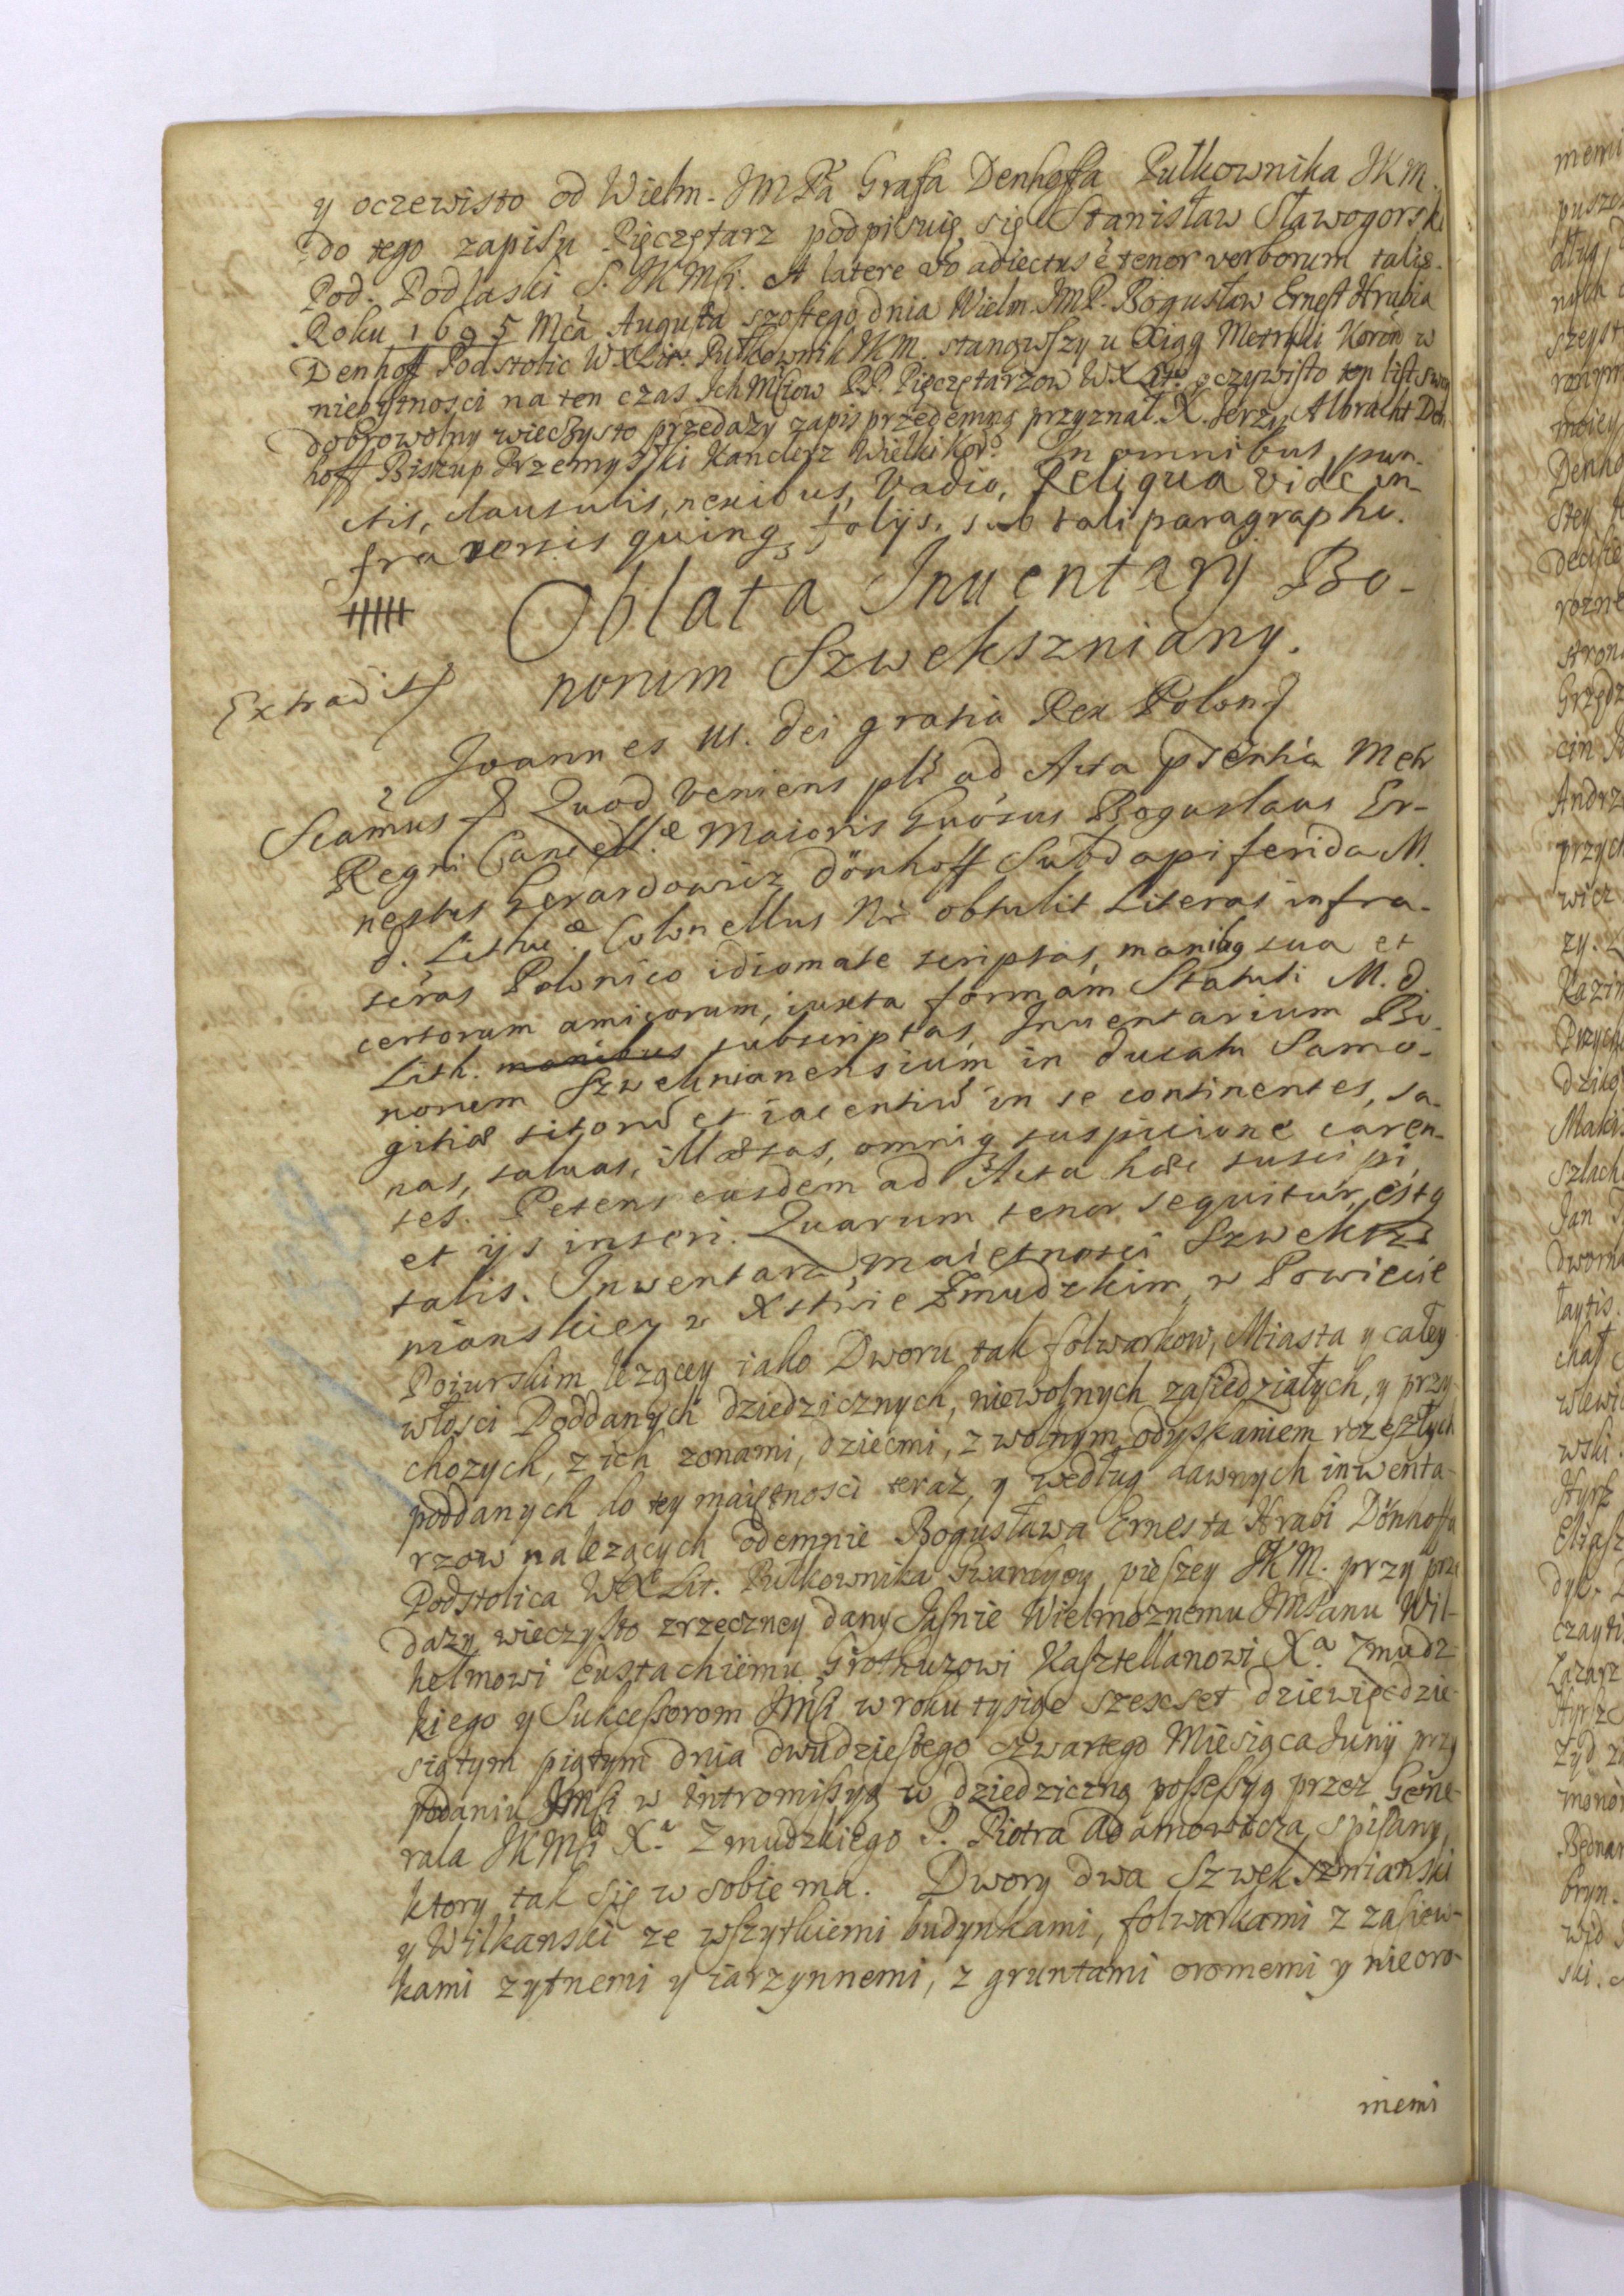 y oczewisto od Wielm. JMPa Grafa Denhoffa Pułkownika JKM.
do tego zapisu Pięczętarz podpisuię się Stanisław Sławogorski
Pod. Podlaski S. JKMśi. A latere vo adiectus é tenor verborum talis.
Roku 1695 Mca Augusta szostego dnia Wielm. JMP. Bogusław Ernest Hrabia
Denhoff Podstolic WXLitt. Pułkownik JKM. stanąwszy u Xiąg Metryki Koron w
niebytnosci na ten czas IchMściow PP. Pięczętarzow WXLitt. oczywisto ten list swoy
dobrowolny wieczysto przedazy zapis przedemną przyznał. X. Jerzy Albracht Den
hoff Biskup Przemyslki Kanclerz Wielki Kor. In omnibus pun-
ctis, clausulis, nexibus, Vadio, Reliqua vide in-
fra versis quinq3 folijs, sub tali paragrapho.
Oblata Inuentarij Bo-
norum Szwekszniany.
Extradit
Joannes III. Dei gratia Rex Polon
Scamus Quod veniens plr ad Acta psentia Metr
Regni Cancell.æ Maioris Gnosus Boguslaus Er-
nestus Gerardowicz Dönhoff Subdapiferida M.
d. Lithu.æ Colonellus Nr obtulit Literas infra-
scras Polonico idiomate scriptas, manibq sua et
certorum amicorum, iuxta formam Statuti M. d.
Lith. manibus subscriptas, Inuentarium Bo-
norum Szweknianensium in ducatu Samo-
gitiæ sitoru et iacentiu in se continentes, sa-
nas, saluas, illæsas, omniq3 suspicione caren-
tes. Petens easdem ad Acta hæc suscipi,
et ijs inseri. Quarum tenor sequitur, estq
talis. Inwentarz maiętnosci Szweksz
nianskiey w Xstwie Zmudzkim, w Powiecie
Poiurskim lezącey iako Dworu tak folwarkow, Miasta y całey
włosci Poddanych dziedzicznych, niewolnych zasiedziałych, y przy-
chozych, z ich zonami, dziecmi, z wolnym odyskaniem rozeszłych
poddanych do tey maiętnosci teraz, y według dawnych inwenta-
rzow nalezących odemnie Bogusława Ernesta Hrabi Dönhoffa
Podstolica WXLit. Pułkownika Gwardyey pieszey JKM. przy prze
dazy wieczysto zrzeczney dany Jasnie Wielmoznemu JMPanu Wil-
helmowi Eustachiemu Grothuzowi Kasztellanowi Xa Zmudz-
kiego y Sukcessorom JMśi w roku tysiąc szescset dziewięcdzie-
siątym piątym dnia dwudziestego czwartego Miesiąca Junij przy
podaniu JMśi w intromissyą w dziedziczną possessyą przez Gene-
rala JKMśi Xa Zmudzkiego P. Piotra Adamowicza spisany,
ktory tak się w sobie ma. Dwory dwa Szwekszniański
y Wilkanski ze wszytkiemi budynkami, folwarkami z zasiew-
kami zytnemi y iarzynnemi, z gruntami oromemi y nieoro-
memi